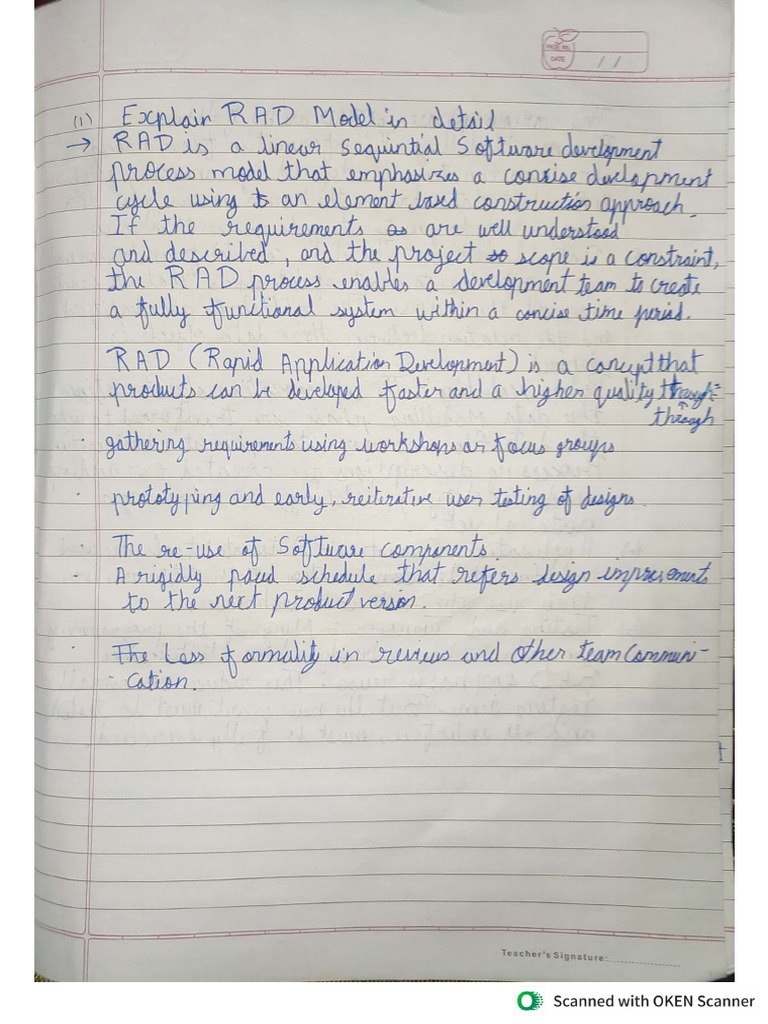 PAGE NO.
DATE / /
(1) Explain RAD Model in detail
→ RAD is a linear sequintial Software development
process model that emphasizes a consise devlopment
cycle using an element based construction approach.
If the requirements are well understood
and described, and the project scope is a constraint,
the RAD process enables a development team to create
a fully functional system within a concise time period.
RAD (Rapid Application Development) is a concept that
products can be developed faster and a higher quality through:
through
· gathering requirements using workshops or focus groups
· prototyping and early, reiterative user testing of designs.
· The re-use of Software components.
· A rigidly paced schedule that refers design improvements
to the next product version.
· The Less formality in reviews and other team Communi-
cation.
Teacher's Signature:
Scanned with OKEN Scanner